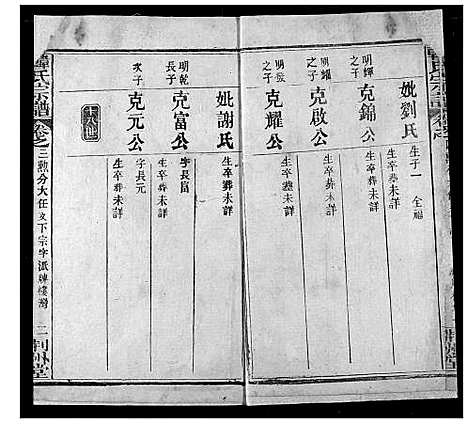 妣劉氏
生子一 全福
生卒葬未詳
明輝之子
克錦公
生卒葬未詳
明耀之子
克啟公
生卒葬未詳
明發之子
克耀公
生卒葬未詳
妣謝氏
生卒葬未詳
明乾長子
克富公
字長富
生卒葬未詳
次子
克元公
字長元
生卒葬未詳
氏宗譜
三勲分大任支下宗字派牌樓灣 二
荆州堂